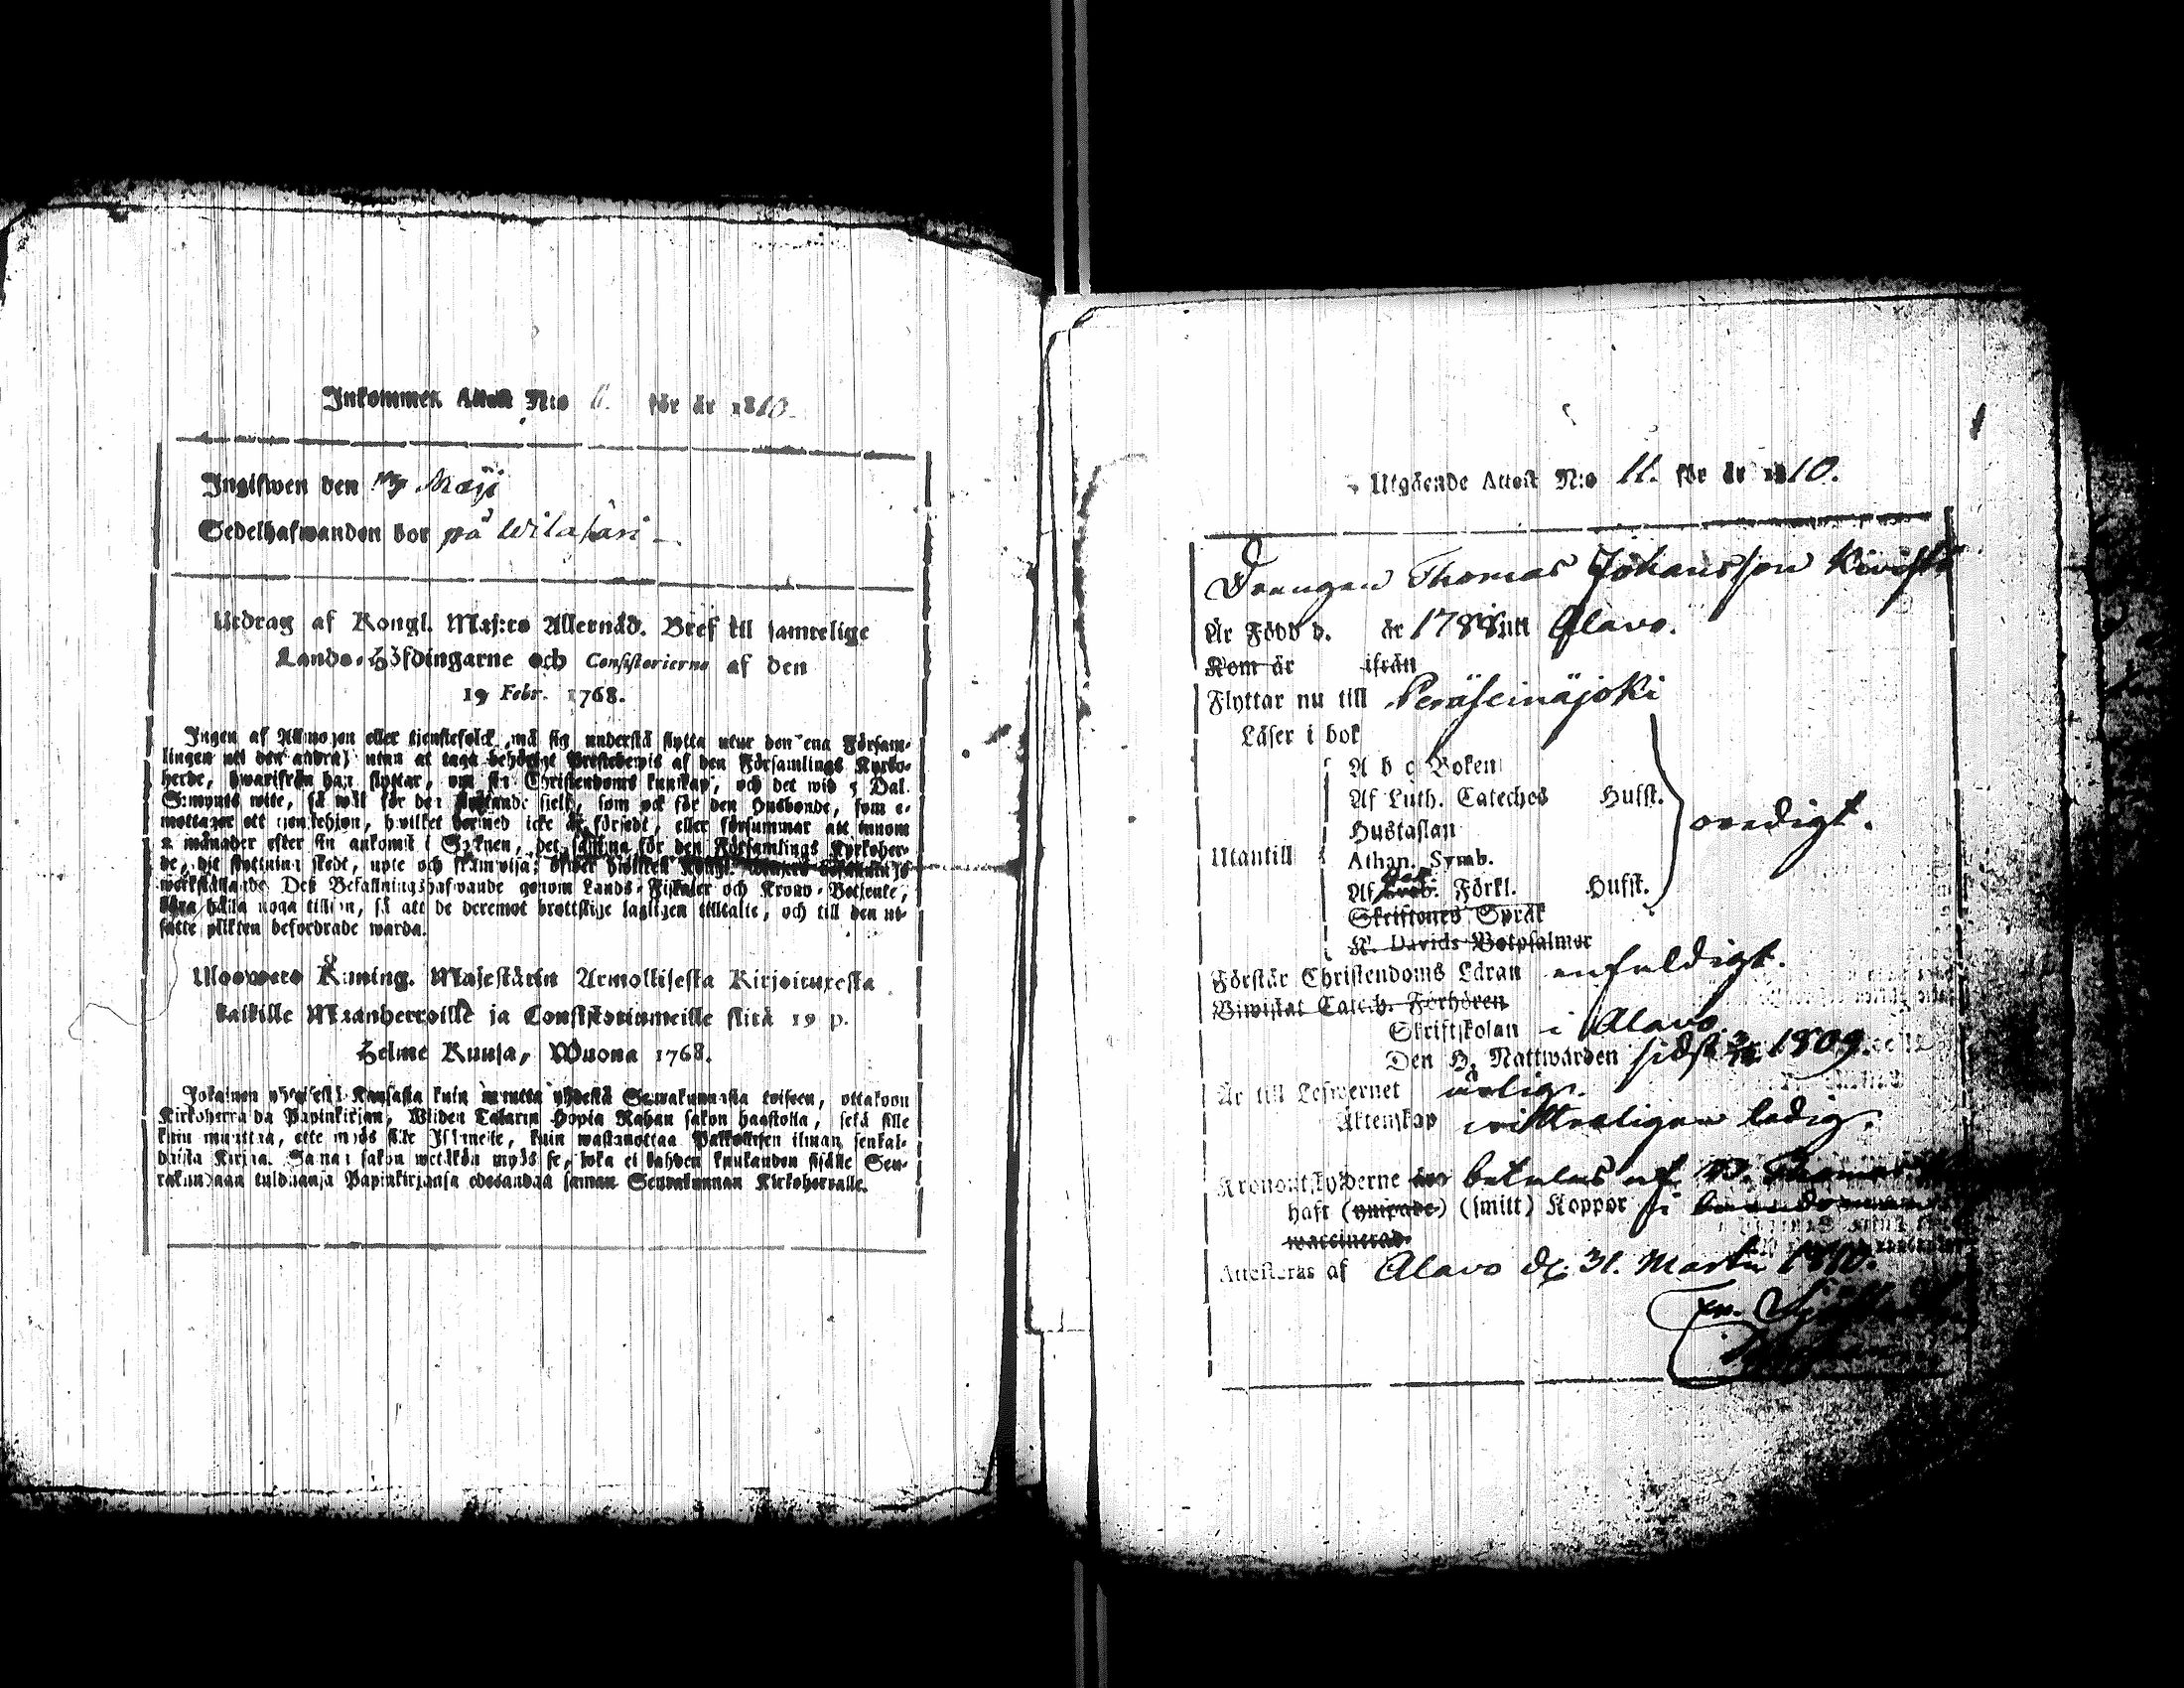 Inkommen Attest N:o 11. för år 1810.
Ingifwen den Maji
Sedelhafwanden bor på Wilasari
Utdrag af Kongl. Maj:ts Allernåd. Bref till samtelige
Lands-Höfdingarne och Consistorierne af den
19 Febr. 1768.
Ingen af Allmogen eller tjenstefolck må sig understå flytta utur den ena Försam-
lingen uti den andra, utan at taga behörige Prestebewis af den Församlings Kyrko-
herde, hwarifrån han flyttar, om sin Christendoms kunskap, och det wid 5 Dal.
S:mynts wite, så wäl för den flyttande sielf, som ock för den Husbonde, som e-
mottager ett tjenstehjon, hwilket dermed icke är försedt, eller försummar att innom
2 månader efter sin ankomst i Socknen, det samma för den Församlings Kyrkoher-
de, dit flyttning skedt, upte och framwisa; öfwer hwilket
werkställande Deß Befallningshafwande genom Lands-Fiskaler och Krono-Betjente,
böra hålla noga tillsyn, så att de deremot brottslige lagligen tilltalte, och till den ut-
satte plikten befordrade warda.
Uloswero Kuning. Majestätin Armollisesta Kirjoituxesta
kaikille Maanherroille ja Consistoriumeille siitä 19 p.
Helme Kuusa, Wuona 1768.
Jokainen yhteisestä Kansasta kuin muutta yhdestä Seurakunnasta toiseen, ottakoon
Kirkoherralda Papinkirjan, Wiiden Talarin Hopia Rahan sakon haastolla, sekä sille
kuin muuttaa, ette myös sille Isännelle, kuin wastanottaa Palkollisen ilman senkal-
daista Kirjaa. Saman sakon wetäkön myös se, joka ei kahden kuukauden sisälle Seu-
rakundaan tulduansa Papinkirjansa edesandaa saman Seurakunnan Kirkoherralle.
Utgående Attest N:o 11. för år 1810.
Drengen Thomas Johansson Kivistö
Är Född d. år 1788 uti Alavo.
Kom år ifrån
Flyttar nu till Peräseinäjoki
Läser i bok
A b c Boken
Af Luth. Cateches Hufst.
Hustaflan
Utantill
Athan. Symb.
Af Förkl. Hufst.
oredigt.
Skriftenes Språk
K. Davids Botpsalmer
Förstår Christendoms Läran enfaldigt.
Biwistat Catech. Förhören
Skriftskolan i Alavo
Den H. Nattwarden sidst 1809.
Är till Lefwernet ärlig.
Äktenskap witterligen ledig.
Kronoutskylderne betalas af
haft (smitt) Koppor i
waccinerad
Attesteras af Alavo d. 31. Martii 1810.